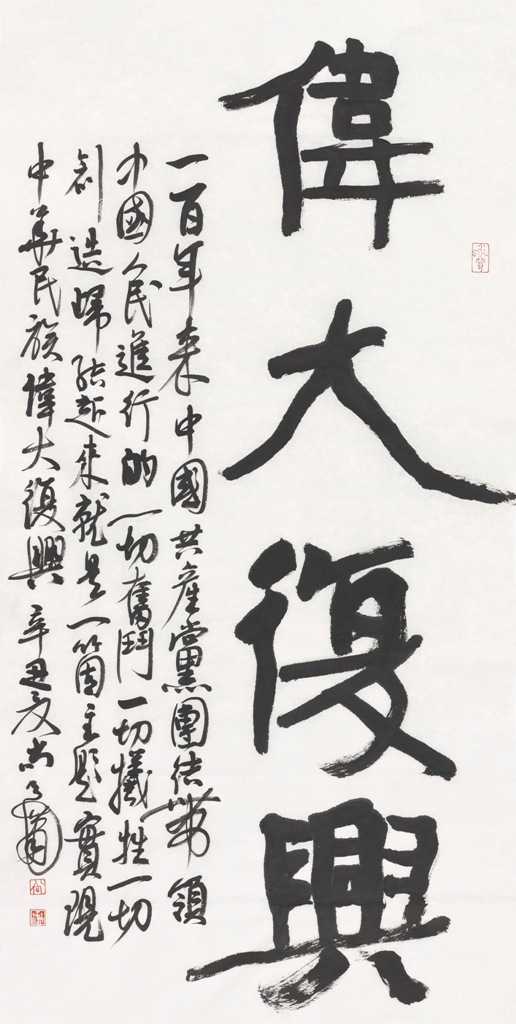 偉大復興
一百年来中國共産黨團结帶領
中國人民進行的一切奮鬥一切犧牲一切
創造歸结起来就是一箇主題實現
中華民族偉大復興辛丑夏尚